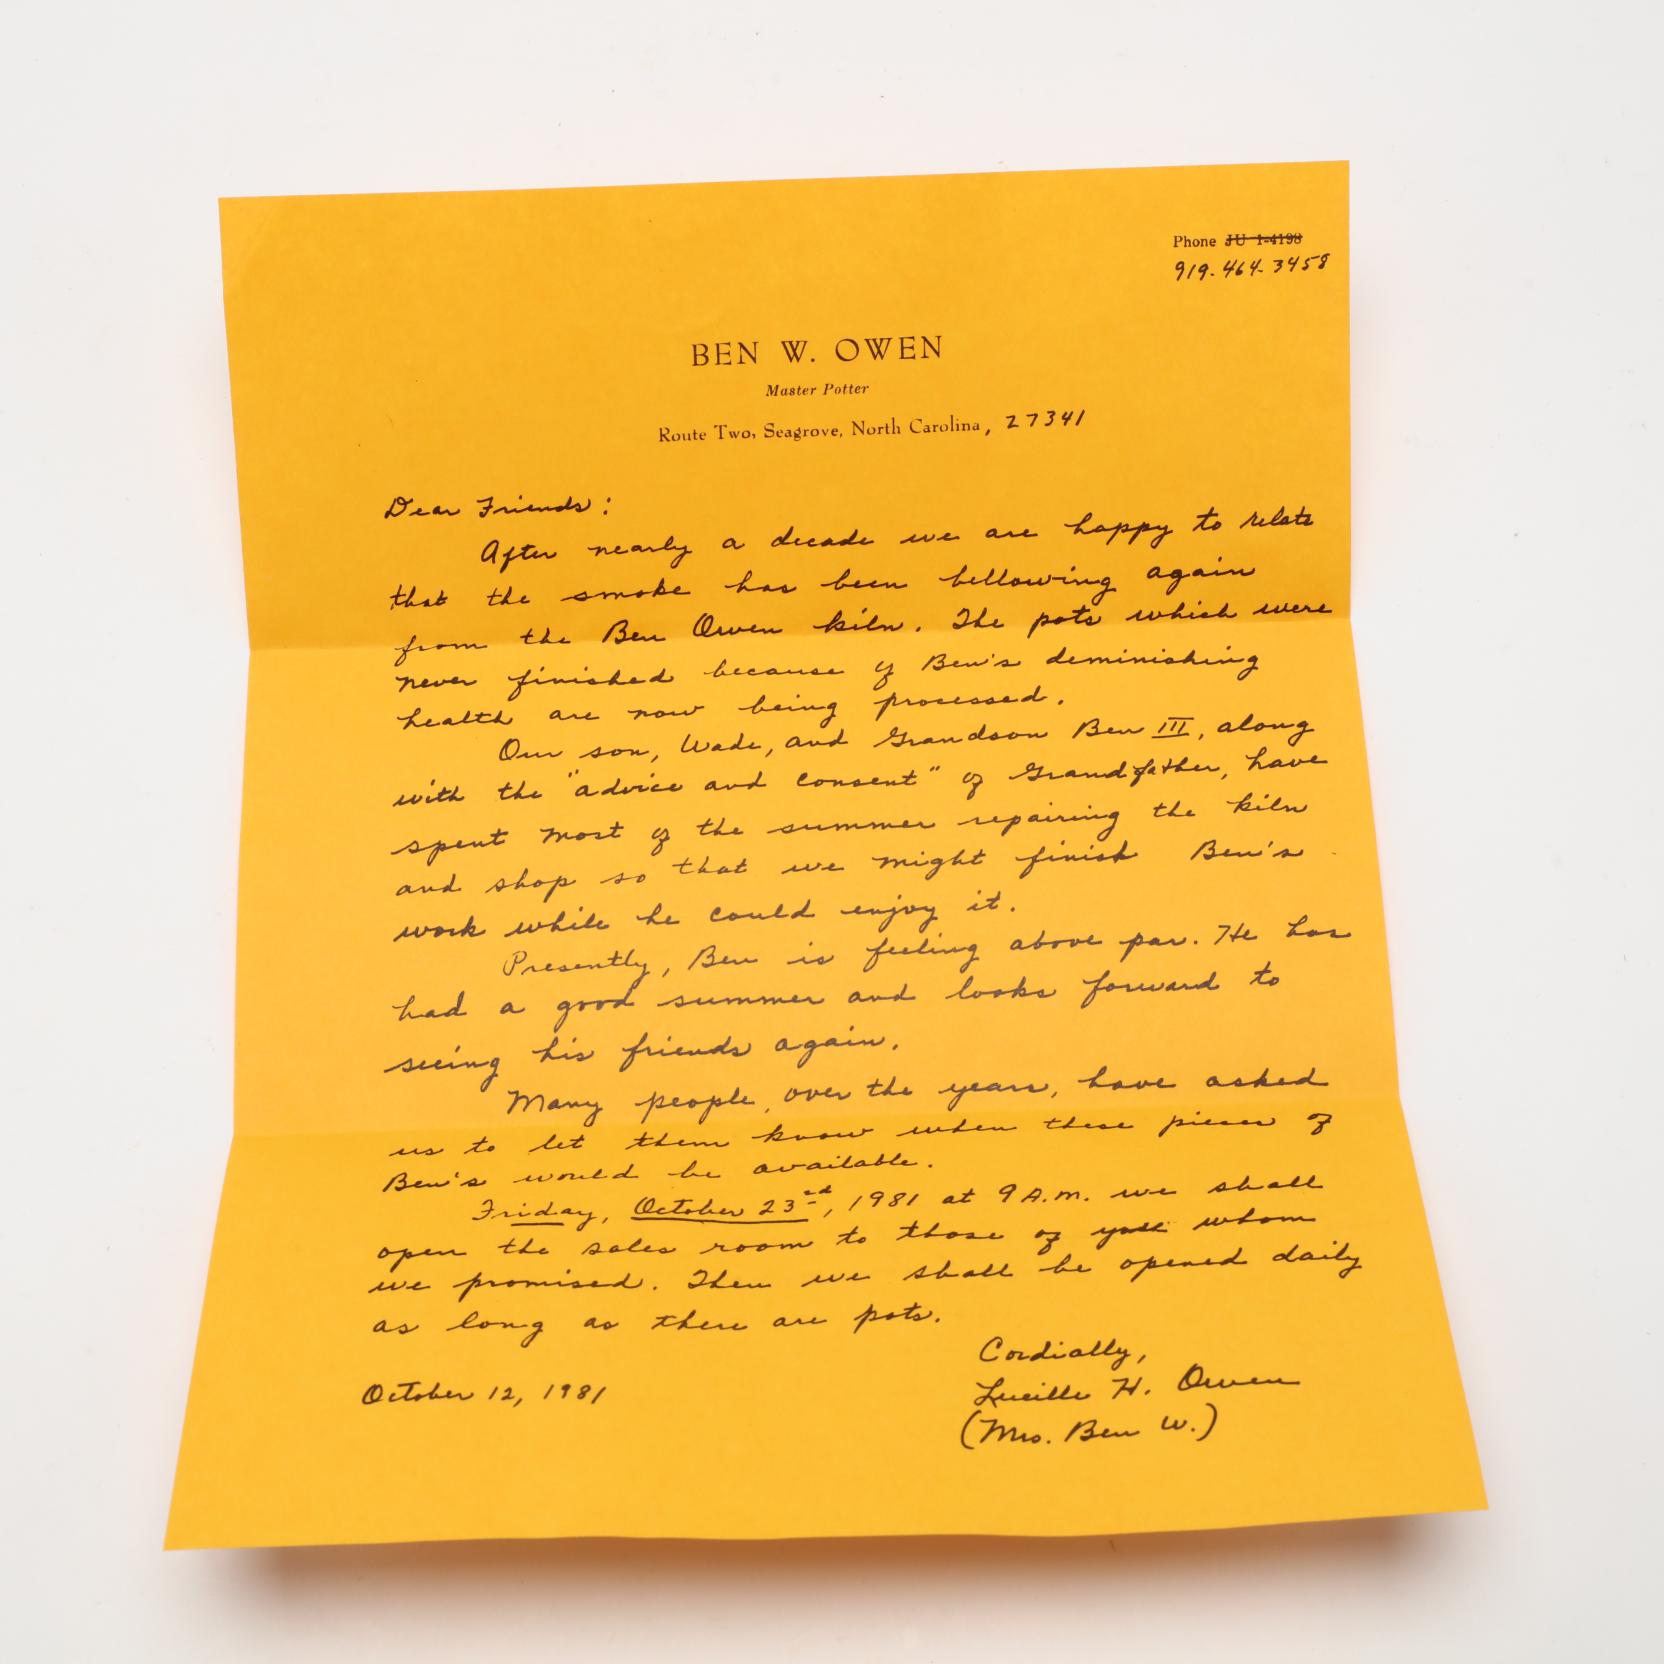 Phone JU 1-4198
919-464-3458
BEN W. OWEN
Master Potter
Route Two, Seagrove, North Carolina, 27341
Dear Friends:
After nearly a decade we are happy to relate
that the smoke has been bellowing again
from the Ben Owen kiln. The pots which were
never finished because of Ben's deminishing
health are now being processed.
Our son, Wade, and Grandson Ben III, along
with the "advice and consent" of Grandfather, have
spent most of the summer repairing the kiln
and shop so that we might finish Ben's
work while he could enjoy it.
Presently, Ben is feeling above par. He has
had a good summer and looks forward to
seeing his friends again.
Many people, over the years, have asked
us to let them know when these pieces of
Ben's would be available.
Friday, October 23rd, 1981 at 9 A.M. we shall
open the sales room to those of you whom
we promised. Then we shall be opened daily
as long as there are pots.
Cordially,
October 12, 1981
Lucille H. Owen
(Mrs. Ben W.)